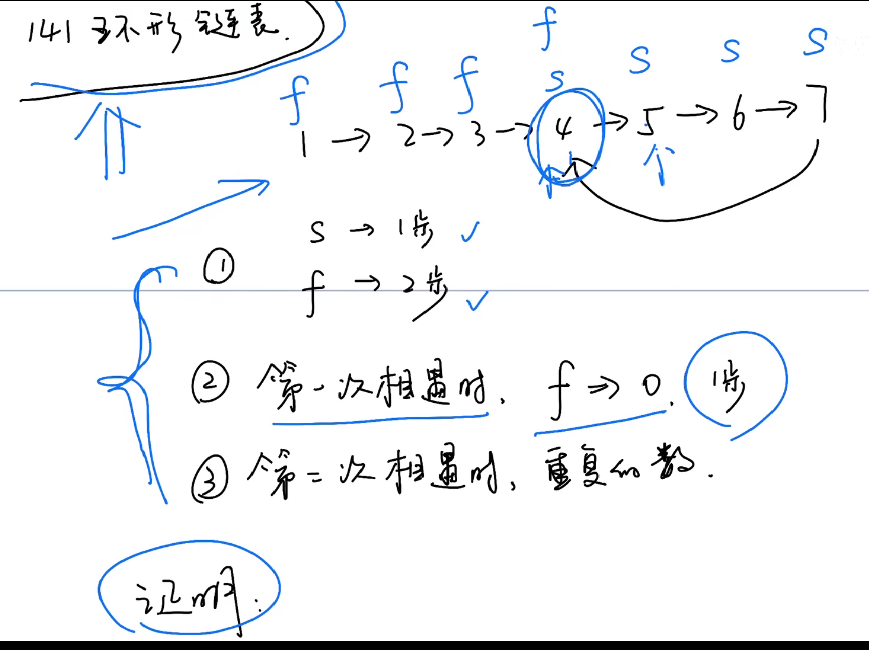 141 环形链表.
f
f f f s s s s
1 → 2 → 3 → 4 → 5 → 6 → 7
① s → 1步 ✓
f → 2步 ✓
② 第一次相遇时, f ⇒ 0. 1步
③ 第二次相遇时, 重复的数.
证明: